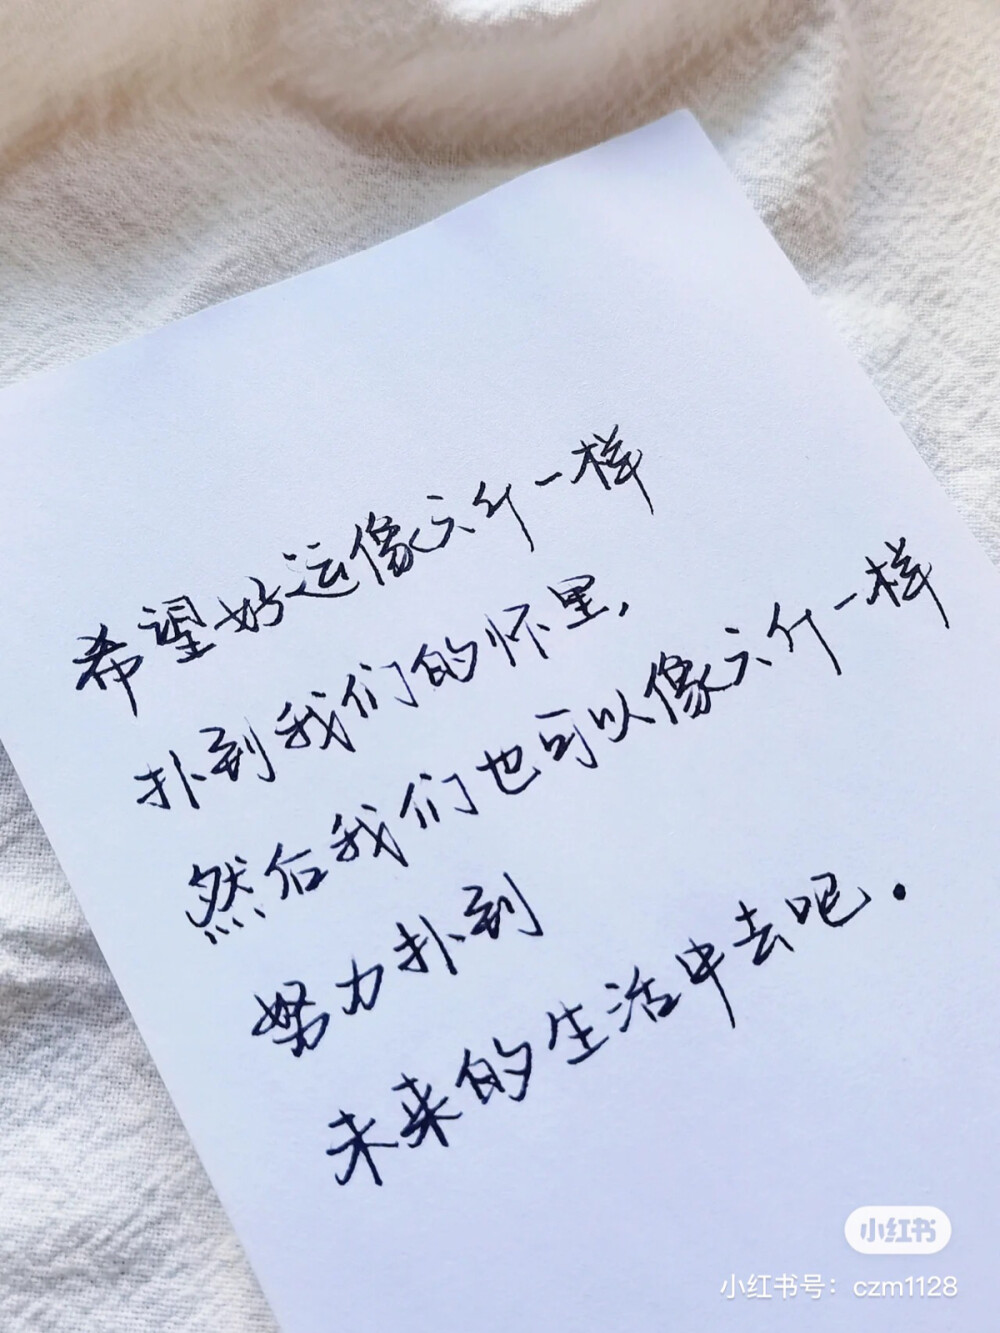 希望好运像六斤一样
扑到我们的怀里,
然后我们也可以像六斤一样
努力扑到
未来的生活中去吧.
小红书
小红书号：czm1128